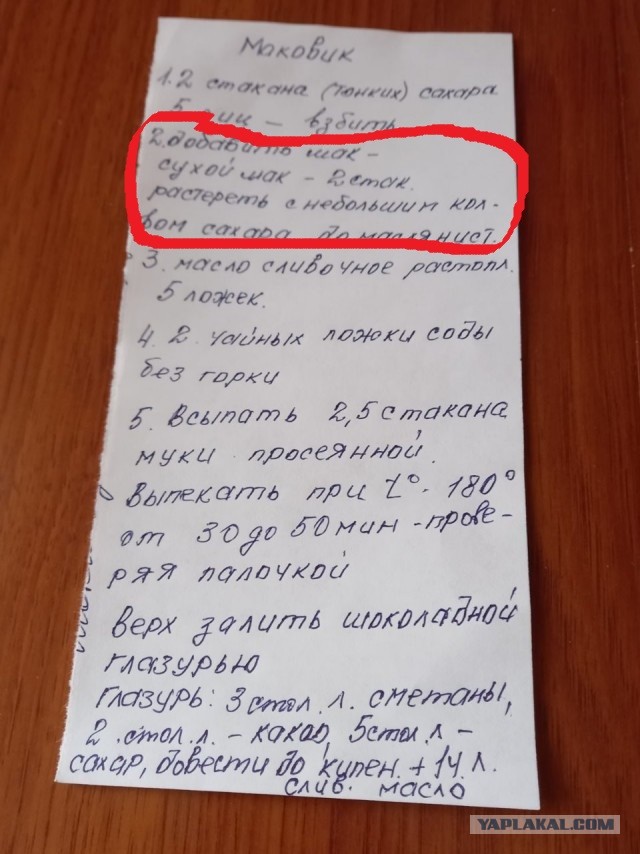 Маковик
1. 2 стакана (тонких) сахара
5 яиц – взбить
2. добавить мак –
сухой мак – 2 стак.
растереть с небольшим кол-
вом сахара до маслянист.
3. масло сливочное растопл.
5 ложек.
4. 2 чайных ложки соды
без горки
5. Всыпать 2,5 стакана
муки просеянной.
Выпекать при t° - 180°
от 30 до 50 мин - прове-
ряя палочкой
верх залить шоколадной
глазурью
глазурь: 3 стол. л. сметаны,
2 стол. л. – какао, 5 стол. л –
сахар, довести до кипен. + 1 ч. л.
слив. масло
YAPLAKAL.COM